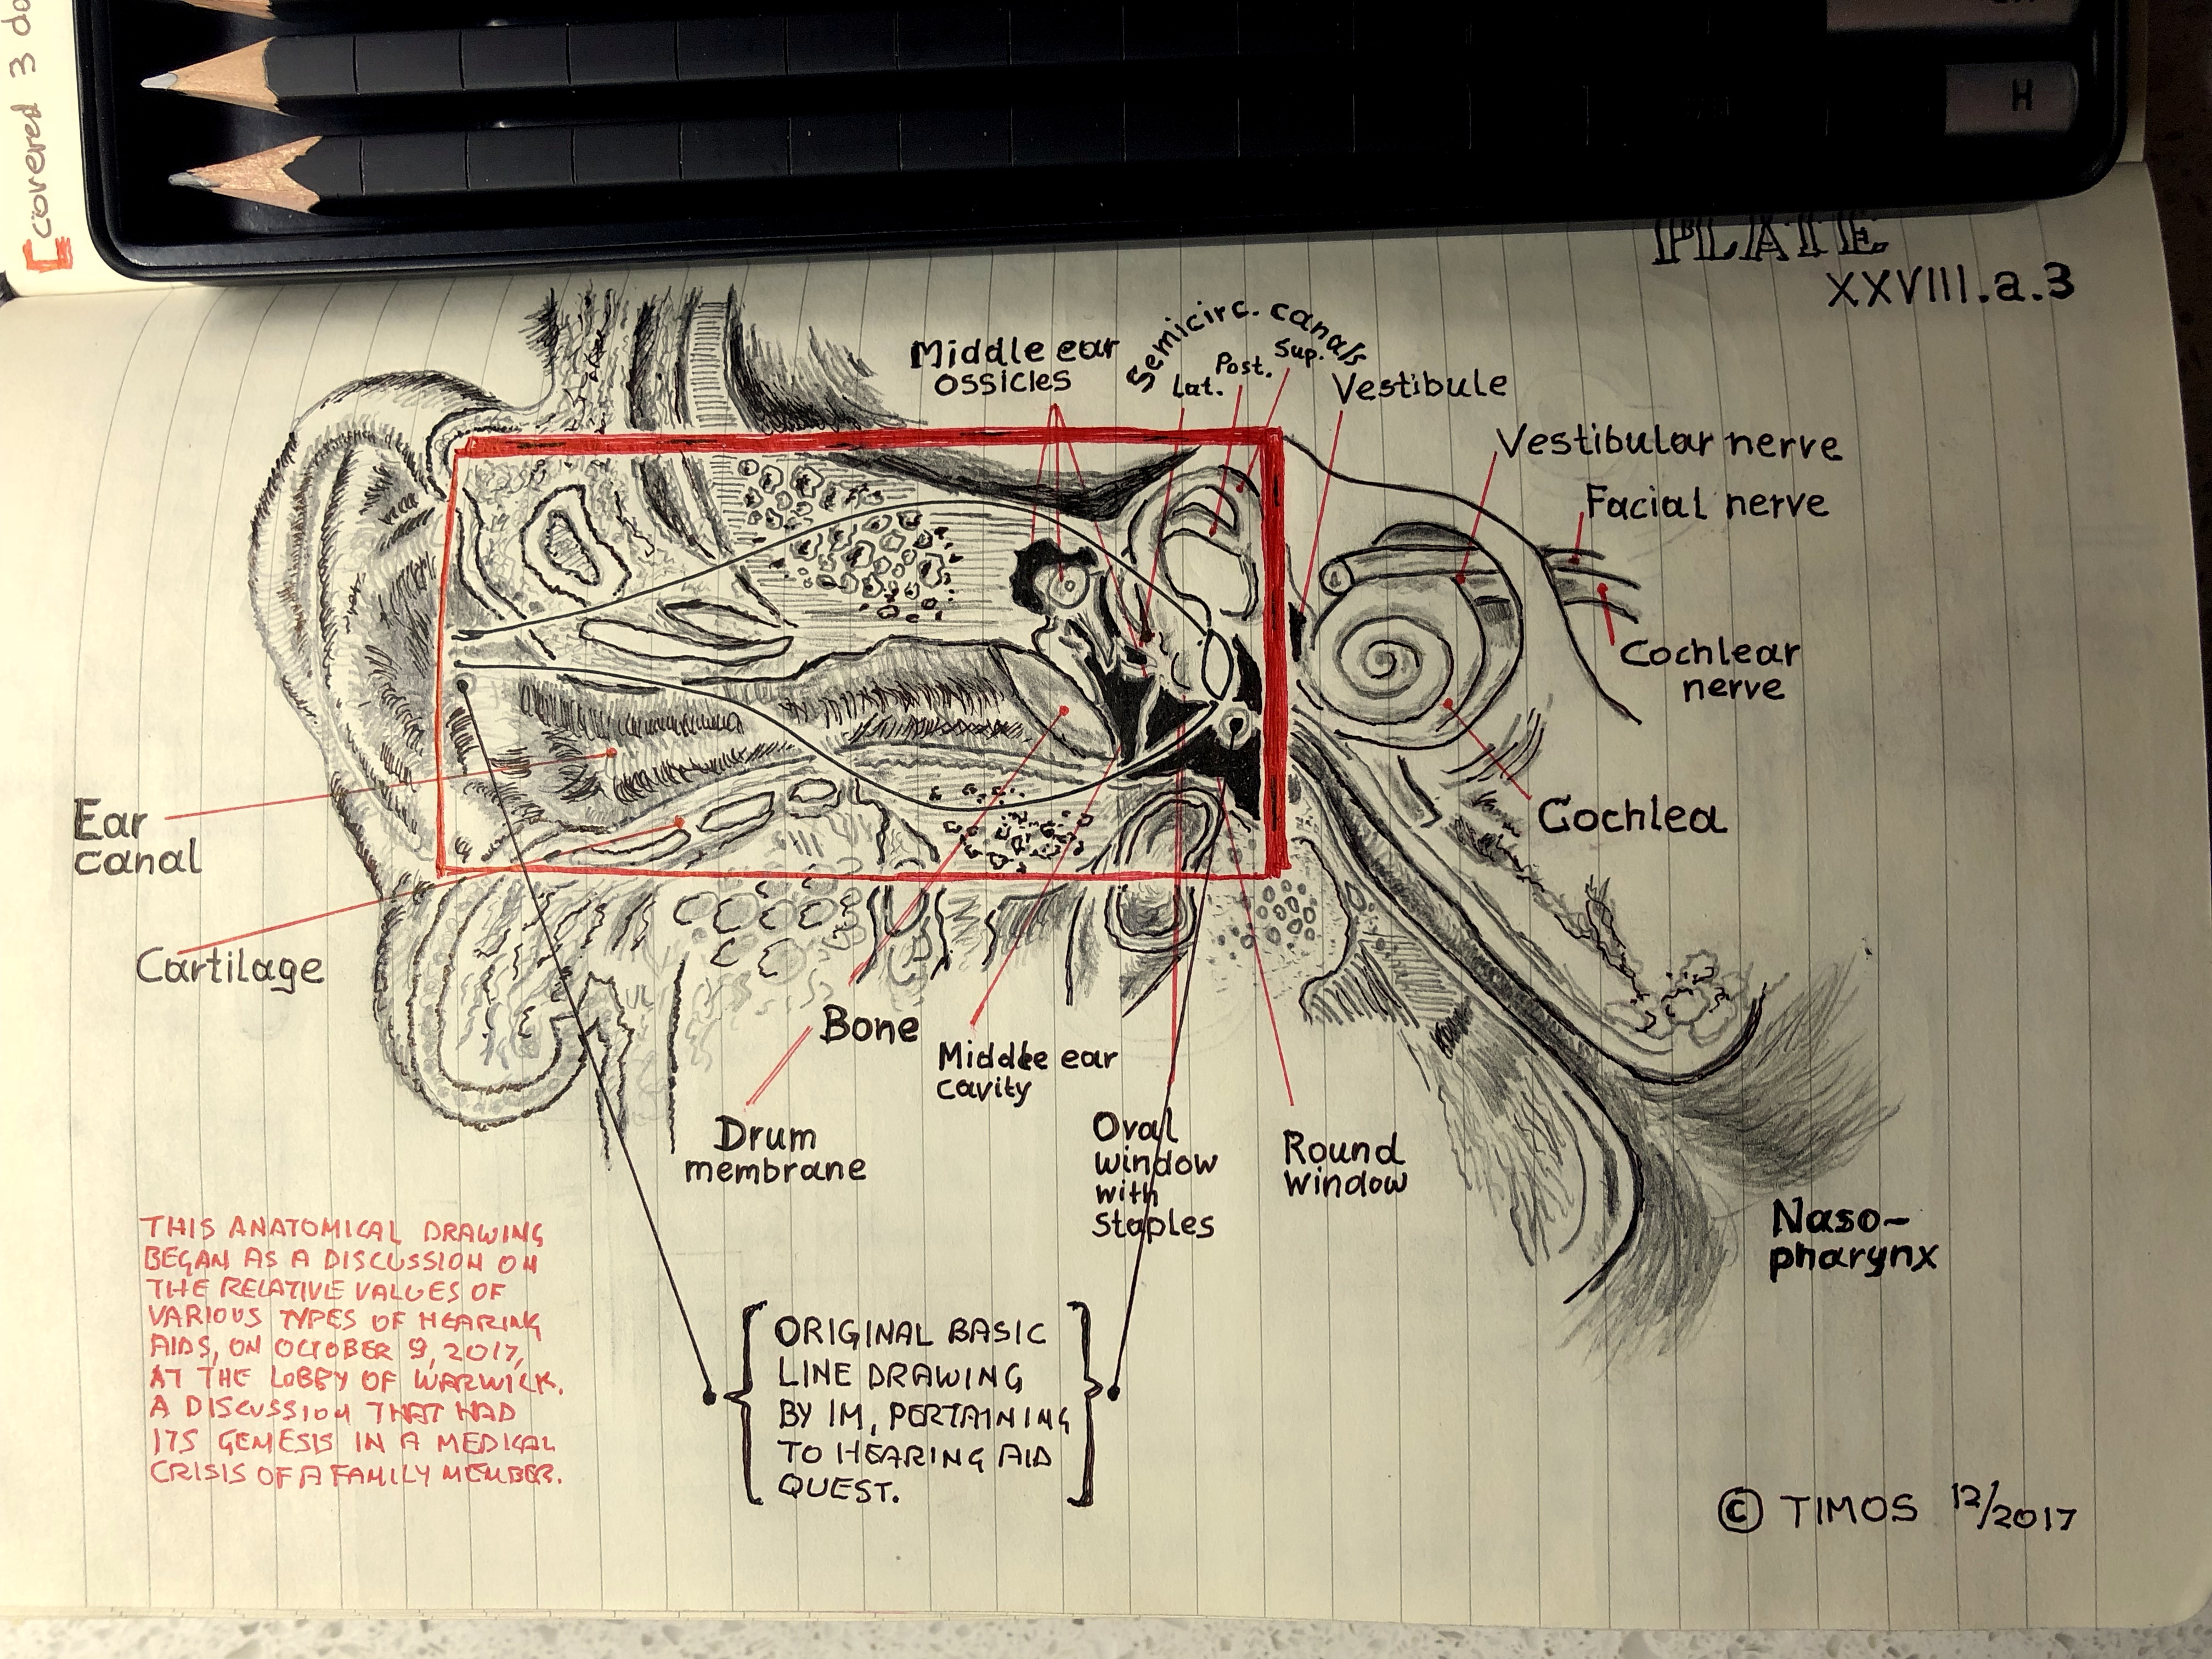 [covered 3
H
PLATE
XXVIII.a.3
Middle ear
ossicles
Semicirc. canals
Lat.
Post.
Sup.
Vestibule
Vestibular nerve
Facial nerve
Cochlear
nerve
Cochlea
Ear
canal
Cartilage
Bone
Drum
membrane
Middle ear
cavity
Oval
window
with
staples
Round
window
Naso-
pharynx
THIS ANATOMICAL DRAWING
BEGAN AS A DISCUSSION ON
THE RELATIVE VALUES OF
VARIOUS TYPES OF HEARING
AIDS, ON OCTOBER 9, 2017,
AT THE LOBBY OF WARWICK.
A DISCUSSION THAT HAD
ITS GEMESIS IN A MEDICAL
CRISIS OF A FAMILY MEMBER.
ORIGINAL BASIC
LINE DRAWING
BY IM, PERTAINING
TO HEARING AID
QUEST.
© TIMOS 12/2017